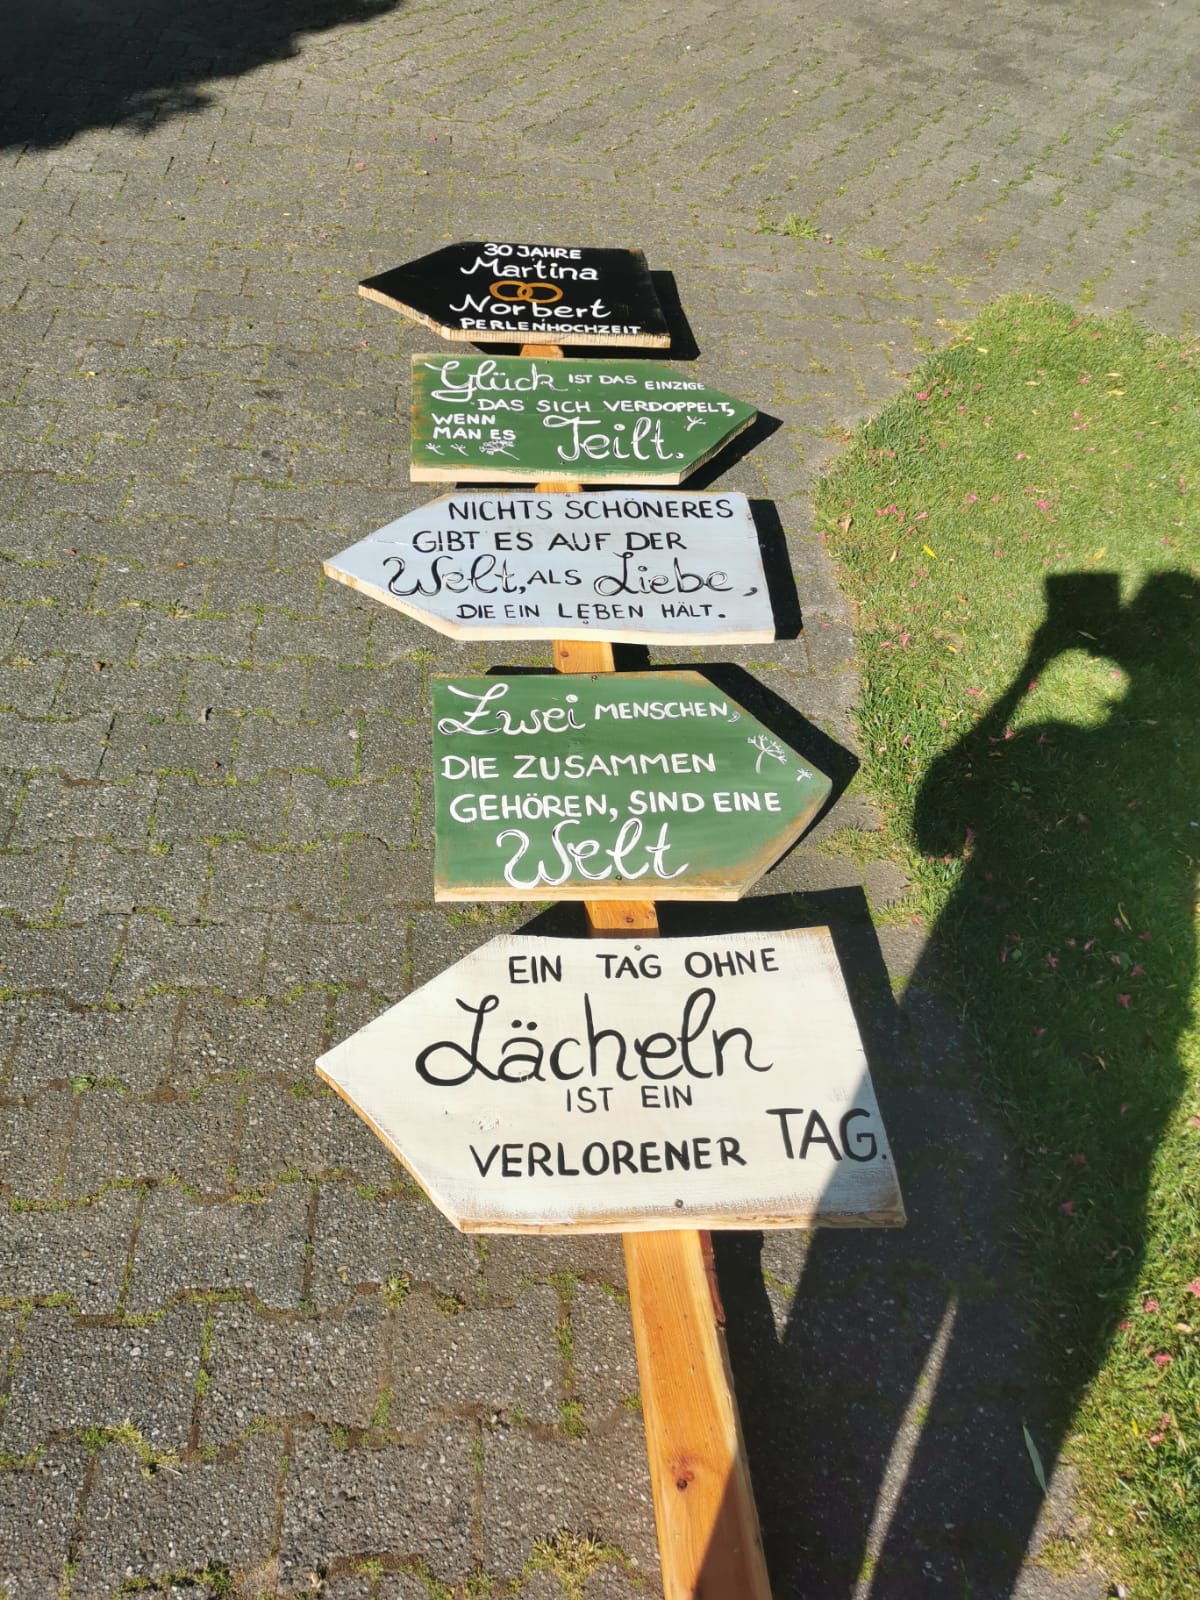 30 JAHRE
Martina
Norbert
PERLENHOCHZEIT
Glück IST DAS EINZIGE
DAS SICH VERDOPPELT,
WENN
MAN ES Teilt.
NICHTS SCHÖNERES
GIBT ES AUF DER
Welt, ALS Liebe,
DIE EIN LEBEN HÄLT.
Zwei MENSCHEN,
DIE ZUSAMMEN
GEHÖREN, SIND EINE
Welt
EIN TAG OHNE
Lächeln
IST EIN
VERLORENER TAG.